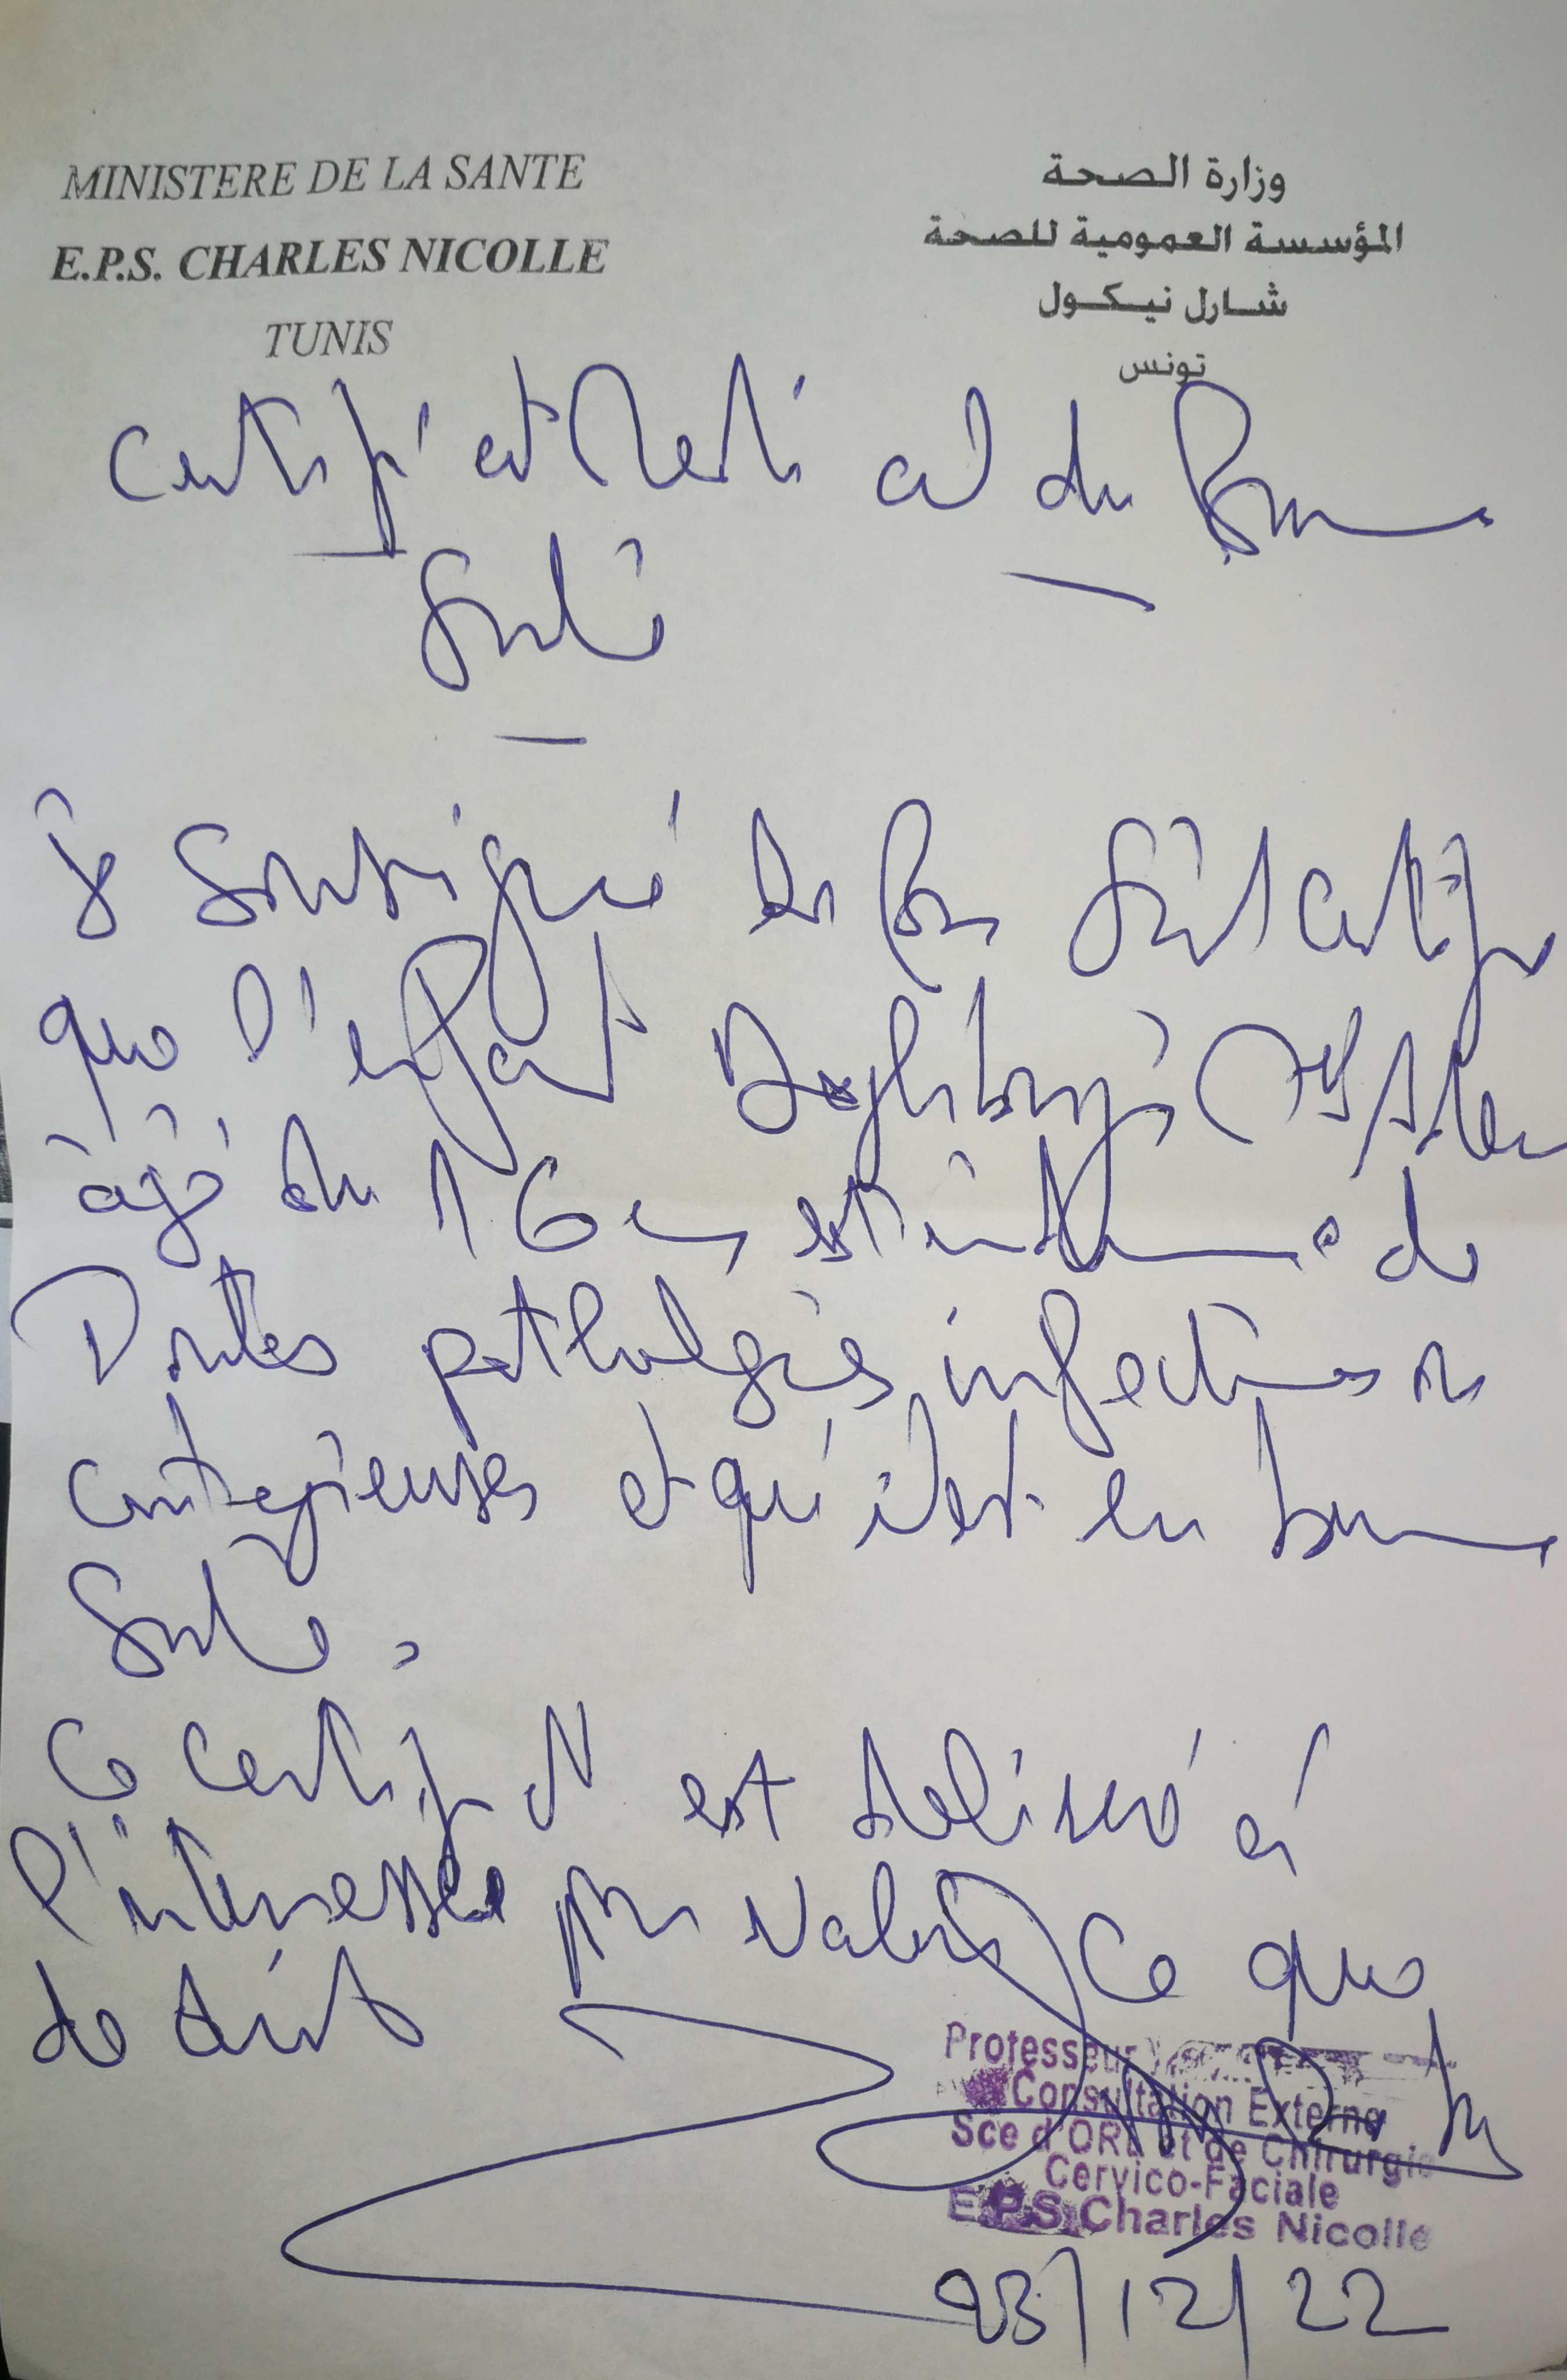 MINISTERE DE LA SANTE
E.P.S. CHARLES NICOLLE
TUNIS
وزارة الصحة
المؤسسة العمومية للصحة
شارل نيكول
تونس
Certificat Medical de Bonne
Santé
Je soussigné certifie
que l'enfant
âgé de 16 ans est indemne de
Toutes pathologies infectieuses ou
contagieuses et qu'il est en bonne
Santé.
Ce certificat est délivré à
l'interessé pour valoir ce que
de droit
Professeur
Consultation Externe
Sce d'ORL et de Chirurgie
Cervico-Faciale
E.P.S Charles Nicolle
/12/22